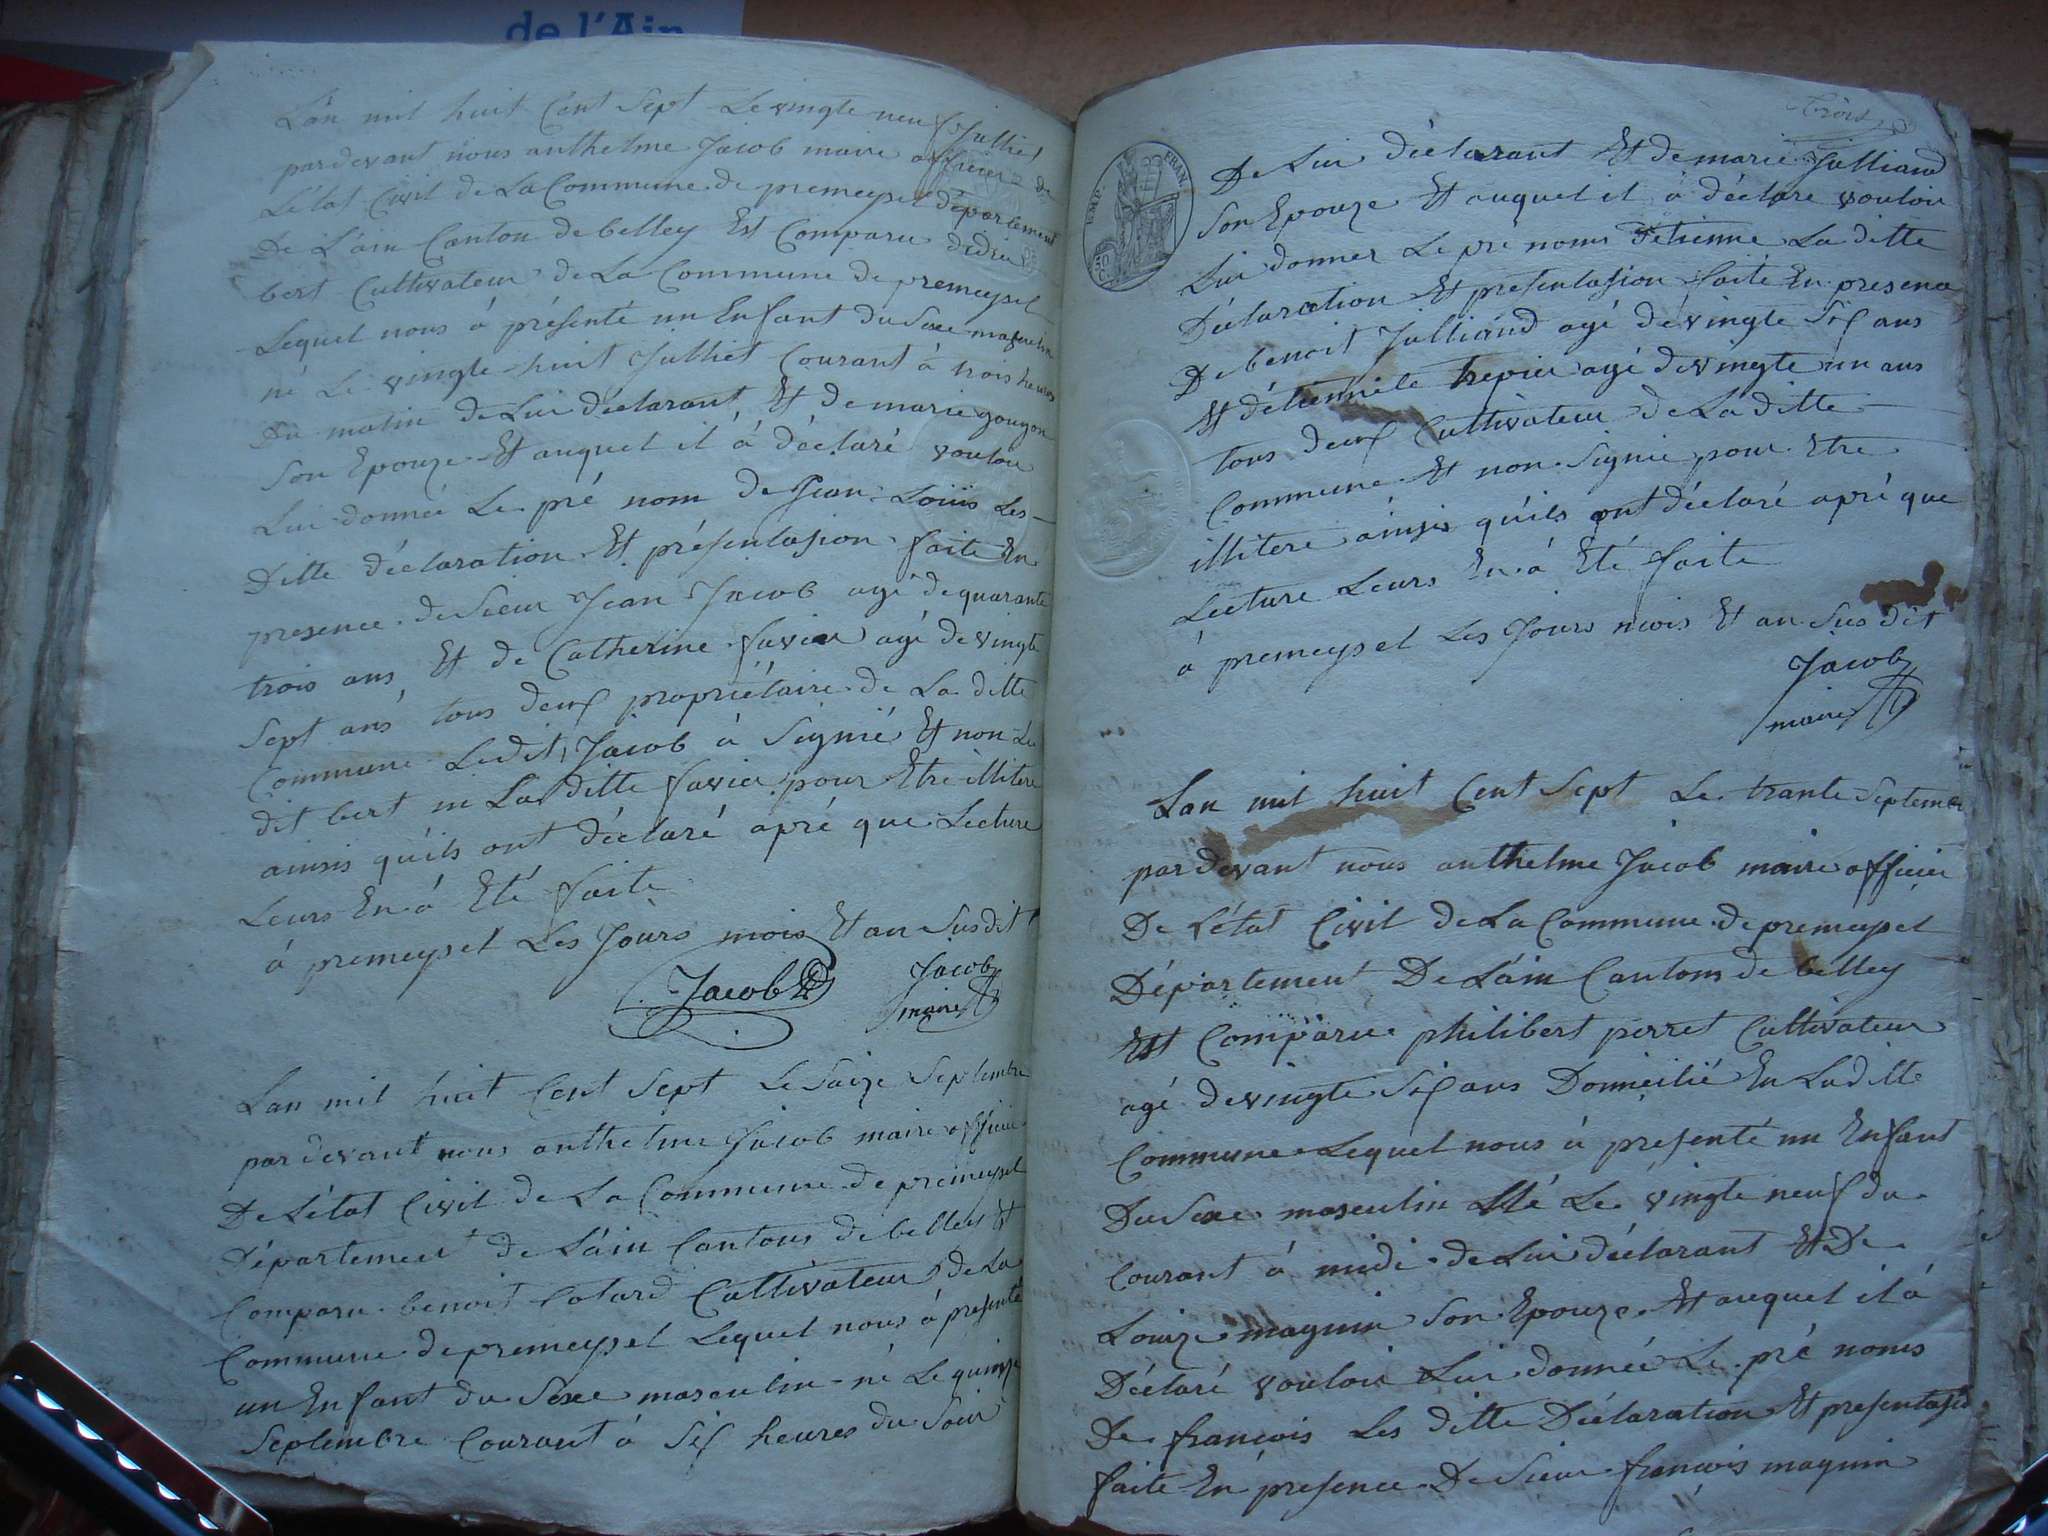 de l'Ain
L'an mil huit Cent Sept Le vingte neuf Julliet
pardevant nous anthelme Jacob maire officier de
L'état Civil de La Commune de premeysel département
De L'ain Canton de belley Est Comparu didier
bert Cultivateur de La Commune de premeysel
Lequel nous à présenté un Enfant du Sexe masculin
né Le vingte huit Julliet Courant à trois heures
Du matin de Lui déclarant Et de marie gougon
Son Epouze Et auquel il à déclaré vouloir
Lui donné Le pré nom de Jean Louis Les
Ditte déclaration Et présentasion faite En
presence de Sieur Jean Jacob agé de quarante
trois ans Et de Catherine favier agé de vingte
Sept ans tous deux propriétaire de La ditte
Commune Ledit Jacob à Signié Et non Le
dit bert ni La ditte favier pour Etre illitere
ainsis qu'ils ont déclaré apré que Lecture
Leurs En à Eté faite
à premeysel Les Jours mois Et an Susdit
Jacob Jacob
maire
Lan mil huit Cent Sept Le Saize Septembre
pardevant nous anthelme Jacob maire officier
De L'état Civil de La Commune de premeysel
Département de L'ain Cantons de belley Et
Comparu benoit Colard Cultivateur de La
Commune de premeysel Lequel nous à présenté
un Enfant du Sexe masculin né Le quinze
Septembre Courant à Six heures du Soir
Trois
EMP. FRAN.
De Lui déclarant Et de marie Julliand
Son Epouze Et auquel il à déclare vouloir
Lui donner Le pré noms Detienne La ditte
Déclaration Et présentasion faite En presence
De benoit Julliand agé de vingte Six ans
Et détienne trepier agé de vingte un ans
tous deux Cultivateur de La ditte
Commune Et non Signie pour Etre
illitere ainsis qu'ils ont déclaré apré que
Lecture Leurs En à Eté faite
à premeysel Les Jours mois Et an Susdit
Jacob
maire
Lan mil huit Cent Sept Le trante Septembre
pardevant nous anthelme Jacob maire officier
De L'état Civil de La Commune de premeysel
Département De L'ain Cantons de belley
Est Comparu philibert perret Cultivateur
agé de vingte Six ans Domicilié En Laditte
Commune Lequel nous à présenté un Enfant
Du Sexe masculin Né Le vingte neuf du
Courant à midi de Lui déclarant Et De
Louize magnin Son Epouze Et auquel il à
Déclaré vouloir Lui donné Le pré noms
De francois Les ditte Déclaration Et présentasion
faite En présence De Sieur francois magnin